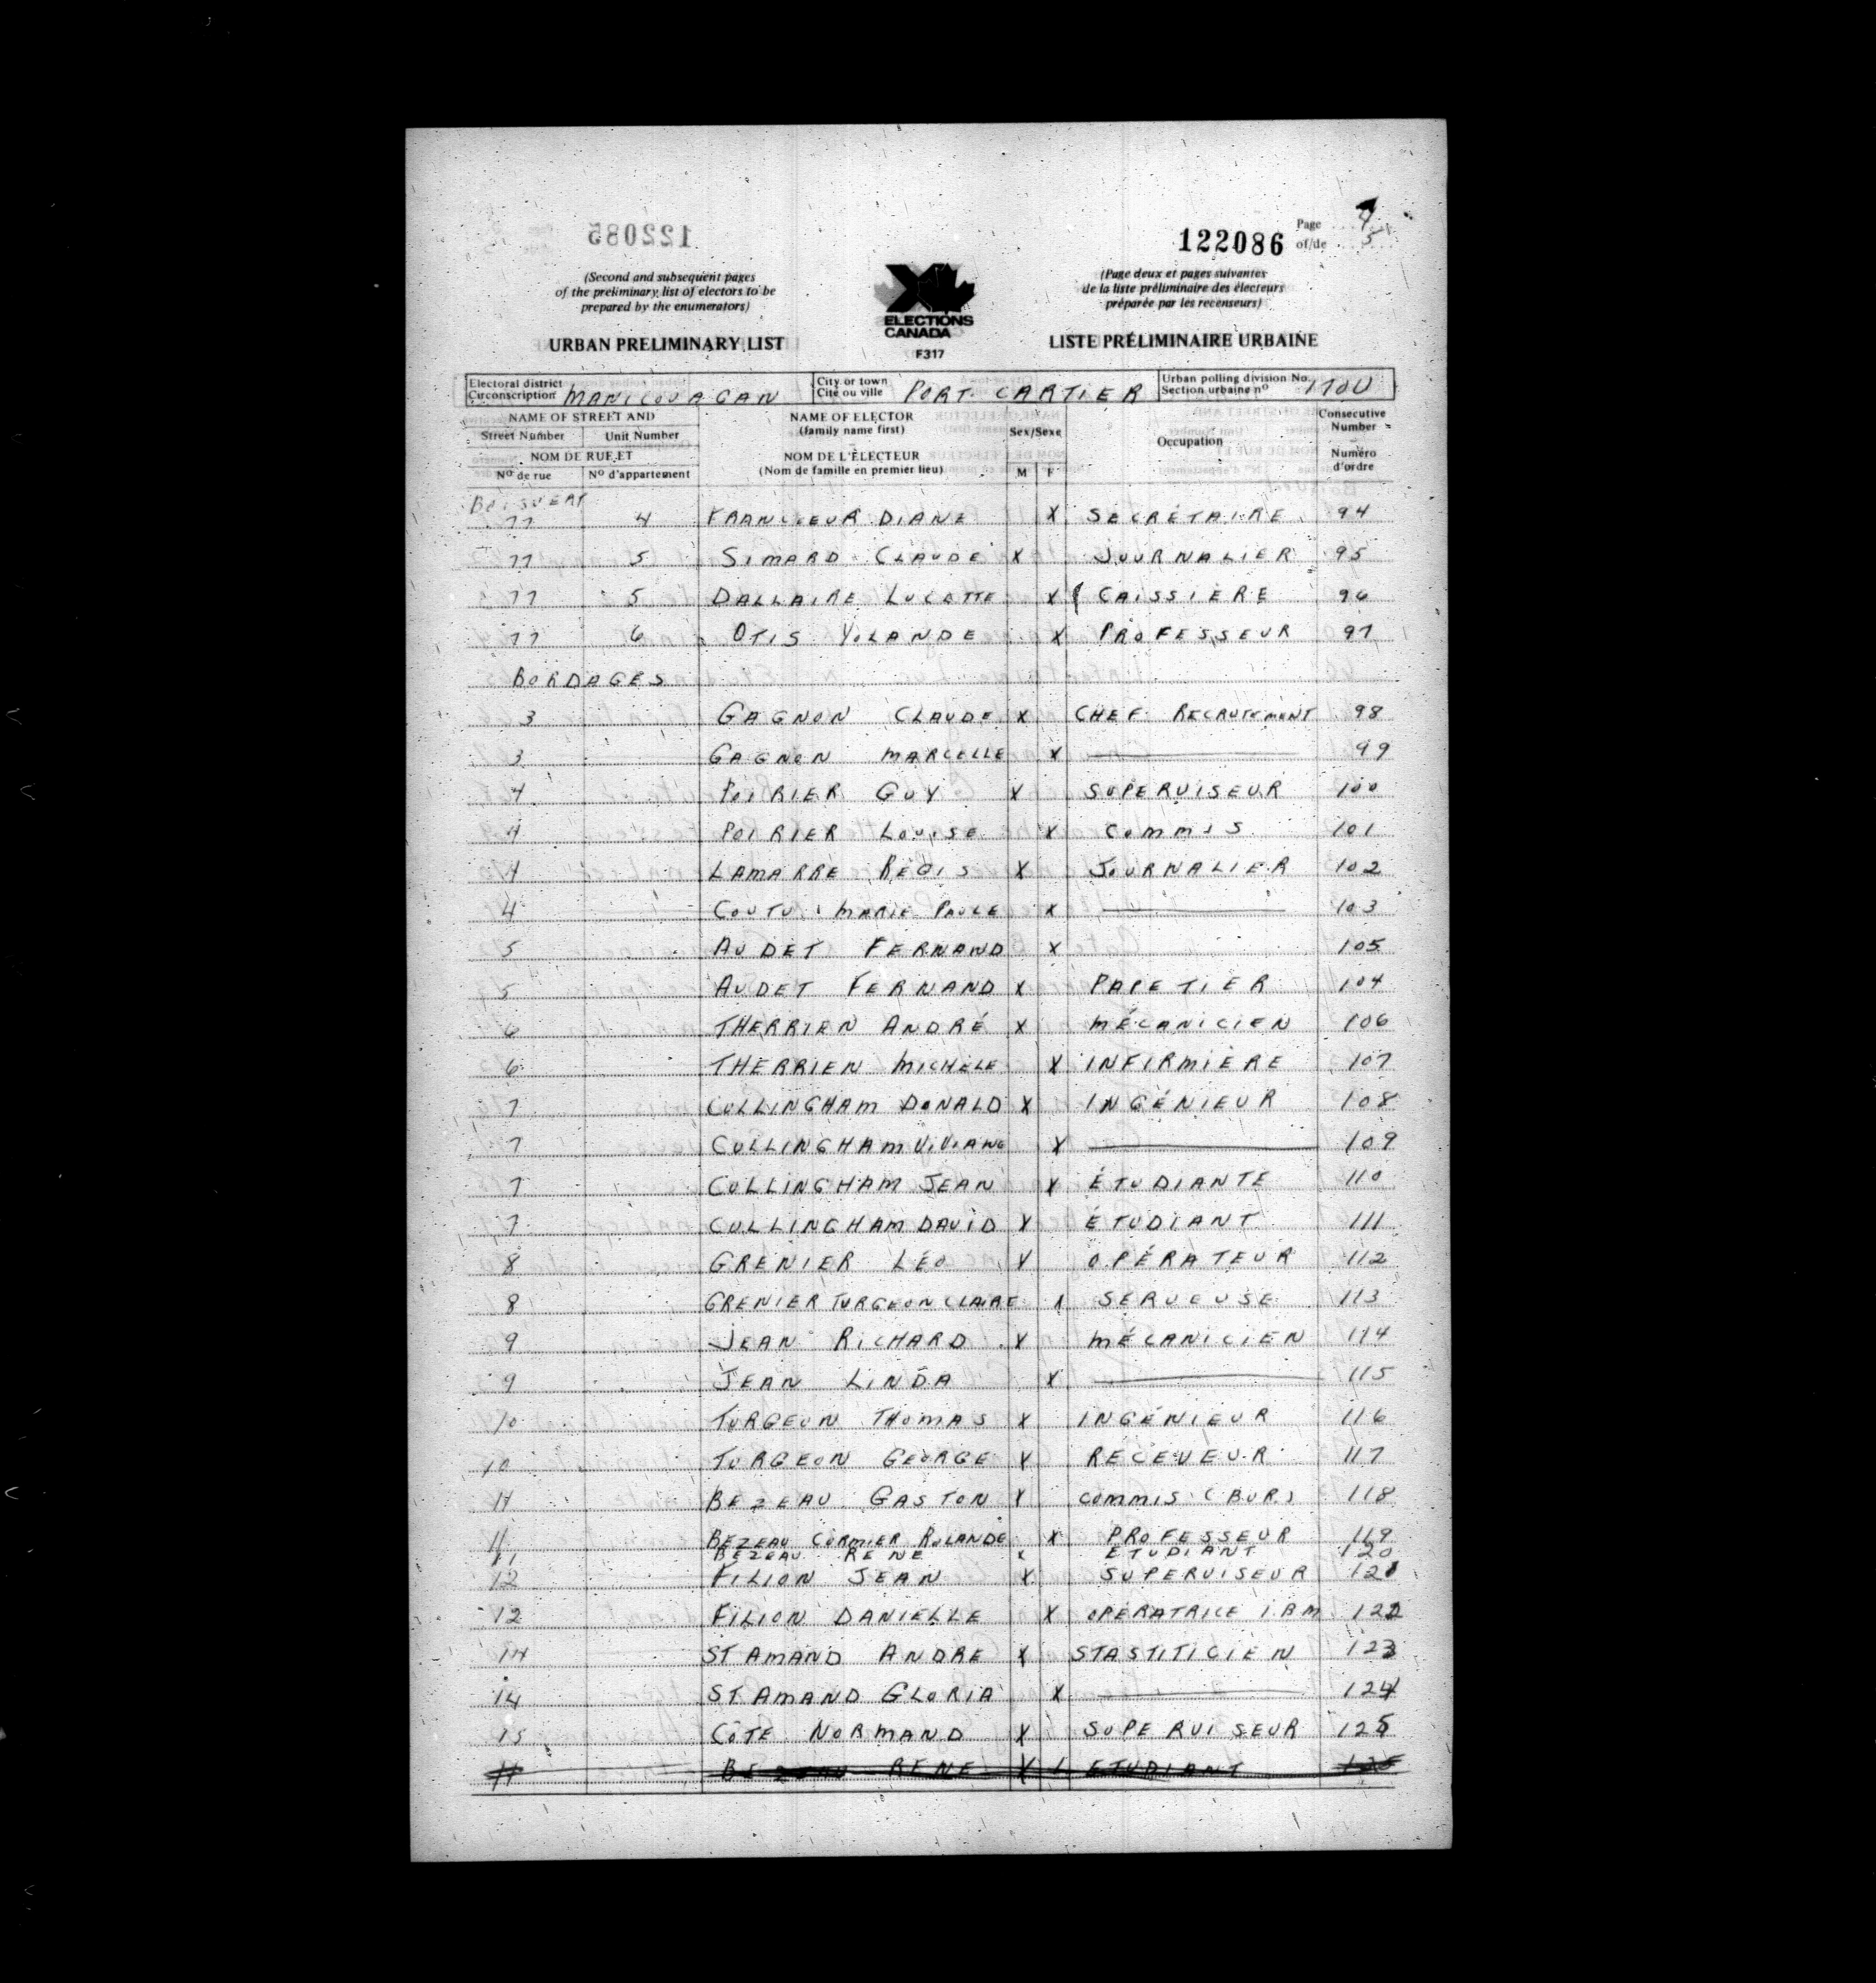 122085
122086
Page 4
of/de 5
(Second and subsequent pages
of the preliminary list of electors to be
prepared by the enumerators)
URBAN PRELIMINARY LIST
ELECTIONS
CANADA
F317
(Page deux et pages suivantes
de la liste préliminaire des électeurs
préparée par les recenseurs)
LISTE PRÉLIMINAIRE URBAINE
Electoral district
Circonscription MANICOUAGAN
City or town
Cité ou ville PORT CARTIER
Urban polling division No.
Section urbaine nº 170U
NAME OF STREET AND
Street Number Unit Number
NOM DE RUE ET
Nº de rue Nº d'appartement
NAME OF ELECTOR
(family name first)
NOM DE L'ÉLECTEUR
(Nom de famille en premier lieu)
Sex/Sexe
M F
Occupation
Consecutive
Number
Numéro
d'ordre
BOISVERT
77 4 FRANCOEUR DIANE X SECRÉTAIRE 94
77 5 SIMARD CLAUDE X JOURNALIER 95
77 5 DALLAIRE LUCETTE X CAISSIÈRE 96
77 6 OTIS YOLANDE X PROFESSEUR 97
BORDAGES
3 GAGNON CLAUDE X CHEF RECRUTEMENT 98
3 GAGNON MARCELLE X — 99
4 POIRIER GUY X SUPERVISEUR 100
4 POIRIER LOUISE X COMMIS 101
4 LAMARRE RÉGIS X JOURNALIER 102
4 COUTU MARIE PAULE X — 103
5 AUDET FERNAND X 105
5 AUDET FERNAND X PAPETIER 104
6 THERRIEN ANDRÉ X MÉCANICIEN 106
6 THERRIEN MICHÈLE X INFIRMIÈRE 107
7 CULLINGHAM DONALD X INGÉNIEUR 108
7 CULLINGHAM VIVIANE X — 109
7 CULLINGHAM JEAN X ÉTUDIANTE 110
7 CULLINGHAM DAVID X ÉTUDIANT 111
8 GRENIER LÉO X OPÉRATEUR 112
8 GRENIER TURGEON CLAIRE X SERVEUSE 113
9 JEAN RICHARD X MÉCANICIEN 114
9 JEAN LINDA X — 115
10 TURGEON THOMAS X INGÉNIEUR 116
10 TURGEON GEORGE X RECEVEUR 117
11 BEZEAU GASTON X COMMIS (BUR.) 118
11 BEZEAU CORMIER ROLANDE X PROFESSEUR 119
11 BEZEAU RENE X ETUDIANT 120
12 FILION JEAN X SUPERVISEUR 121
12 FILION DANIELLE X OPERATRICE IBM 122
14 ST AMAND ANDRE X STASTITICIEN 123
14 ST AMAND GLORIA X — 124
15 CÔTE NORMAND X SUPERVISEUR 125
11 BEZEAU RENE X ETUDIANT 125